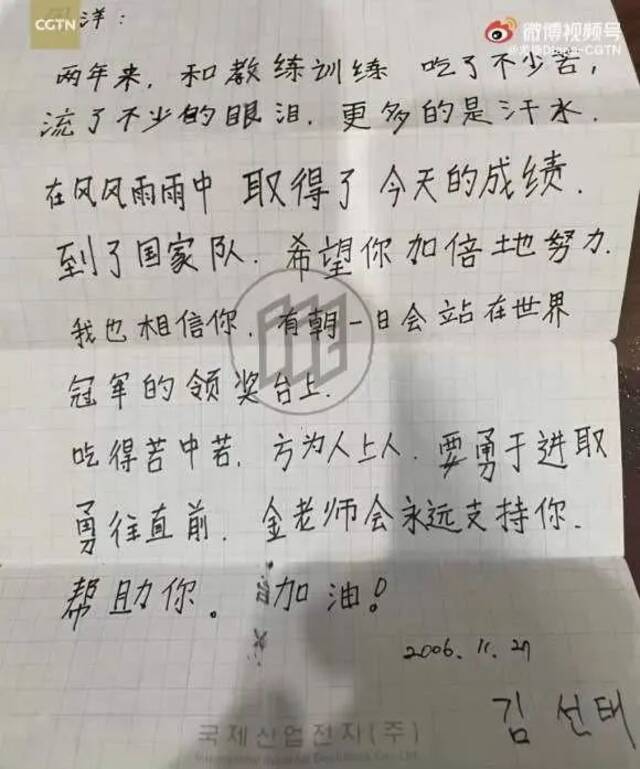 CGTN
微博视频号
洋：
两年来，和教练训练 吃了不少苦，
流了不少的眼泪．更多的是汗水．
在风风雨雨中 取得了 今天的成绩．
到了国家队．希望你加倍地努力．
我也相信你，有朝一日会站在世界
冠军的领奖台上．
吃得苦中苦，方为人上人．要勇于进取
勇往直前．金老师会永远支持你．
帮助你。加油！
2006.11.27
김 선태
국제산업전자(주)